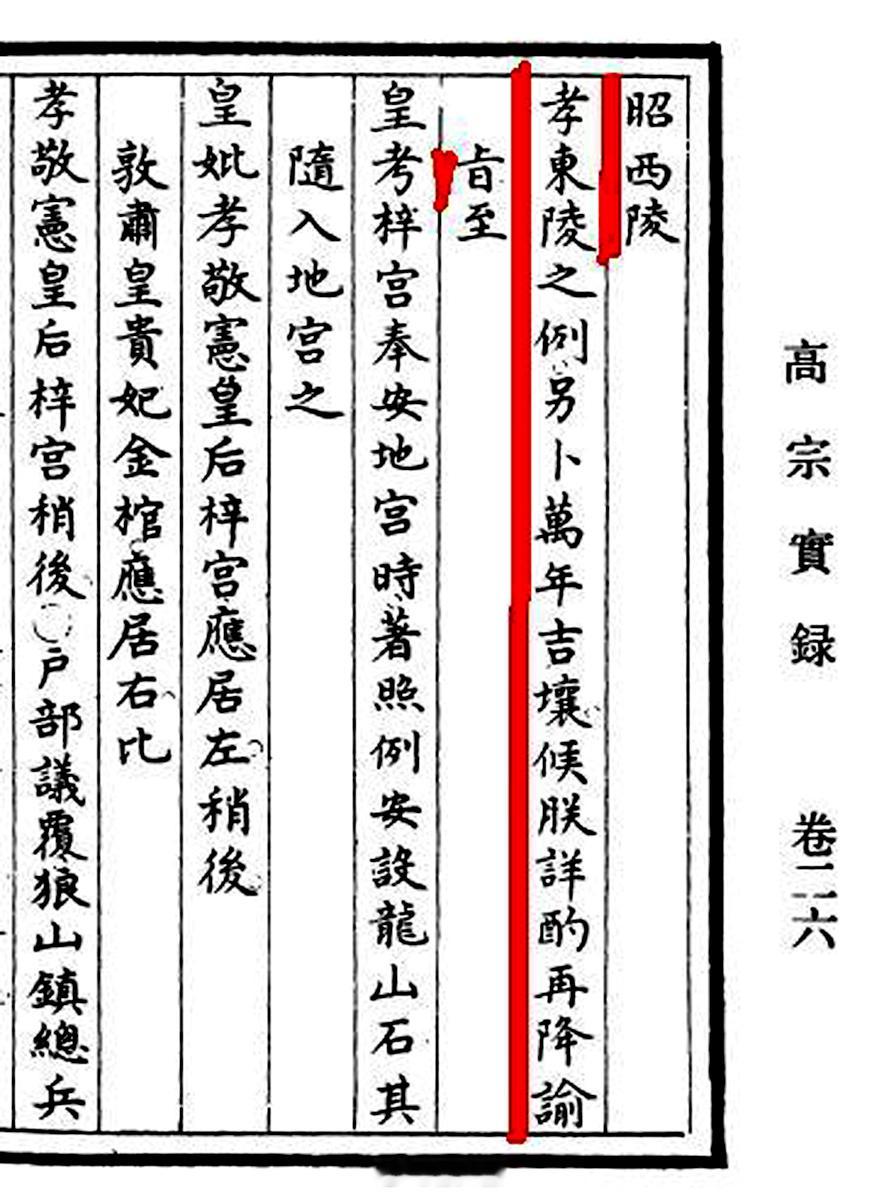 高宗實録 卷二六
昭西陵
孝東陵之例另卜萬年吉壤候朕詳酌再降諭
㫖至
皇考梓宫奉安地宫時著照例安設龍山石其
隨入地宫之
皇妣孝敬憲皇后梓宫應居左稍後
敦肅皇貴妃金棺應居右比
孝敬憲皇后梓宫稍後〇戶部議覆狼山鎮總兵